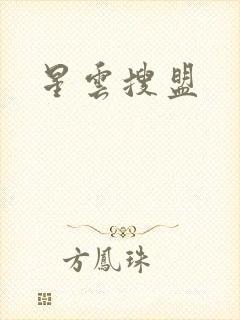 星雲搜盟
方鳳珠